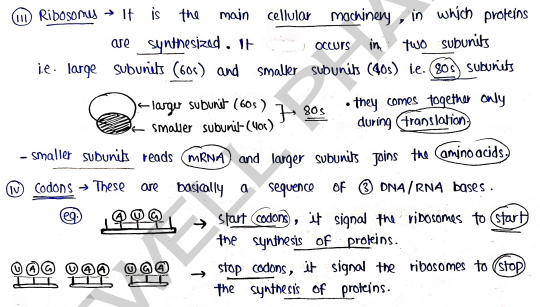 (iii) Ribosomes → It is the main cellular machinery, in which proteins
are synthesized. It occurs in two subunits
i.e. large subunits (60s) and smaller subunits (40s) i.e. 80s subunits
← larger subunit (60s)
← smaller subunit (40s)
→ 80s
• they comes together only
during translation.
- smaller subunits reads mRNA and larger subunits joins the amino acids.
(iv) Codons → These are basically a sequence of 3 DNA/RNA bases.
eg. A U G → start codons, it signal the ribosomes to start
the synthesis of proteins.
U A G U A A U G A → stop codons, it signal the ribosomes to stop
the synthesis of proteins.